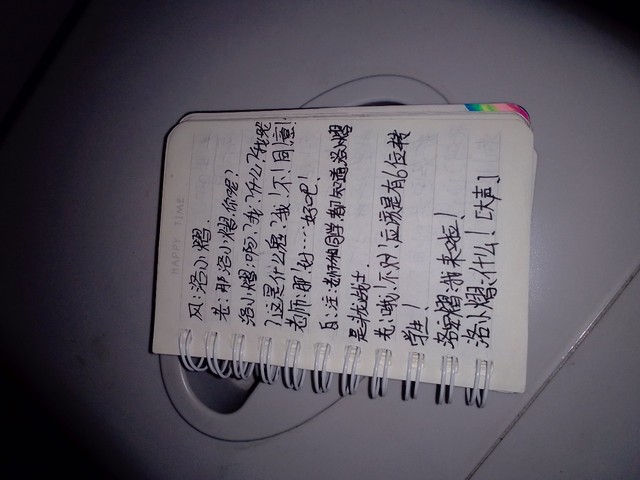 HAPPY TIME
风:洛小熠.
老:那洛小熠.你呢?
洛小熠:啊?我?什么?我我
?这是什么鬼?我!不!同意!
老师:那!好……好吧!
注:老师和同学都知道洛小熠
是龙战士
老:哦!不对!应该是有6位转
学生!
熠:我来啦!
洛小熠:什么![大声]